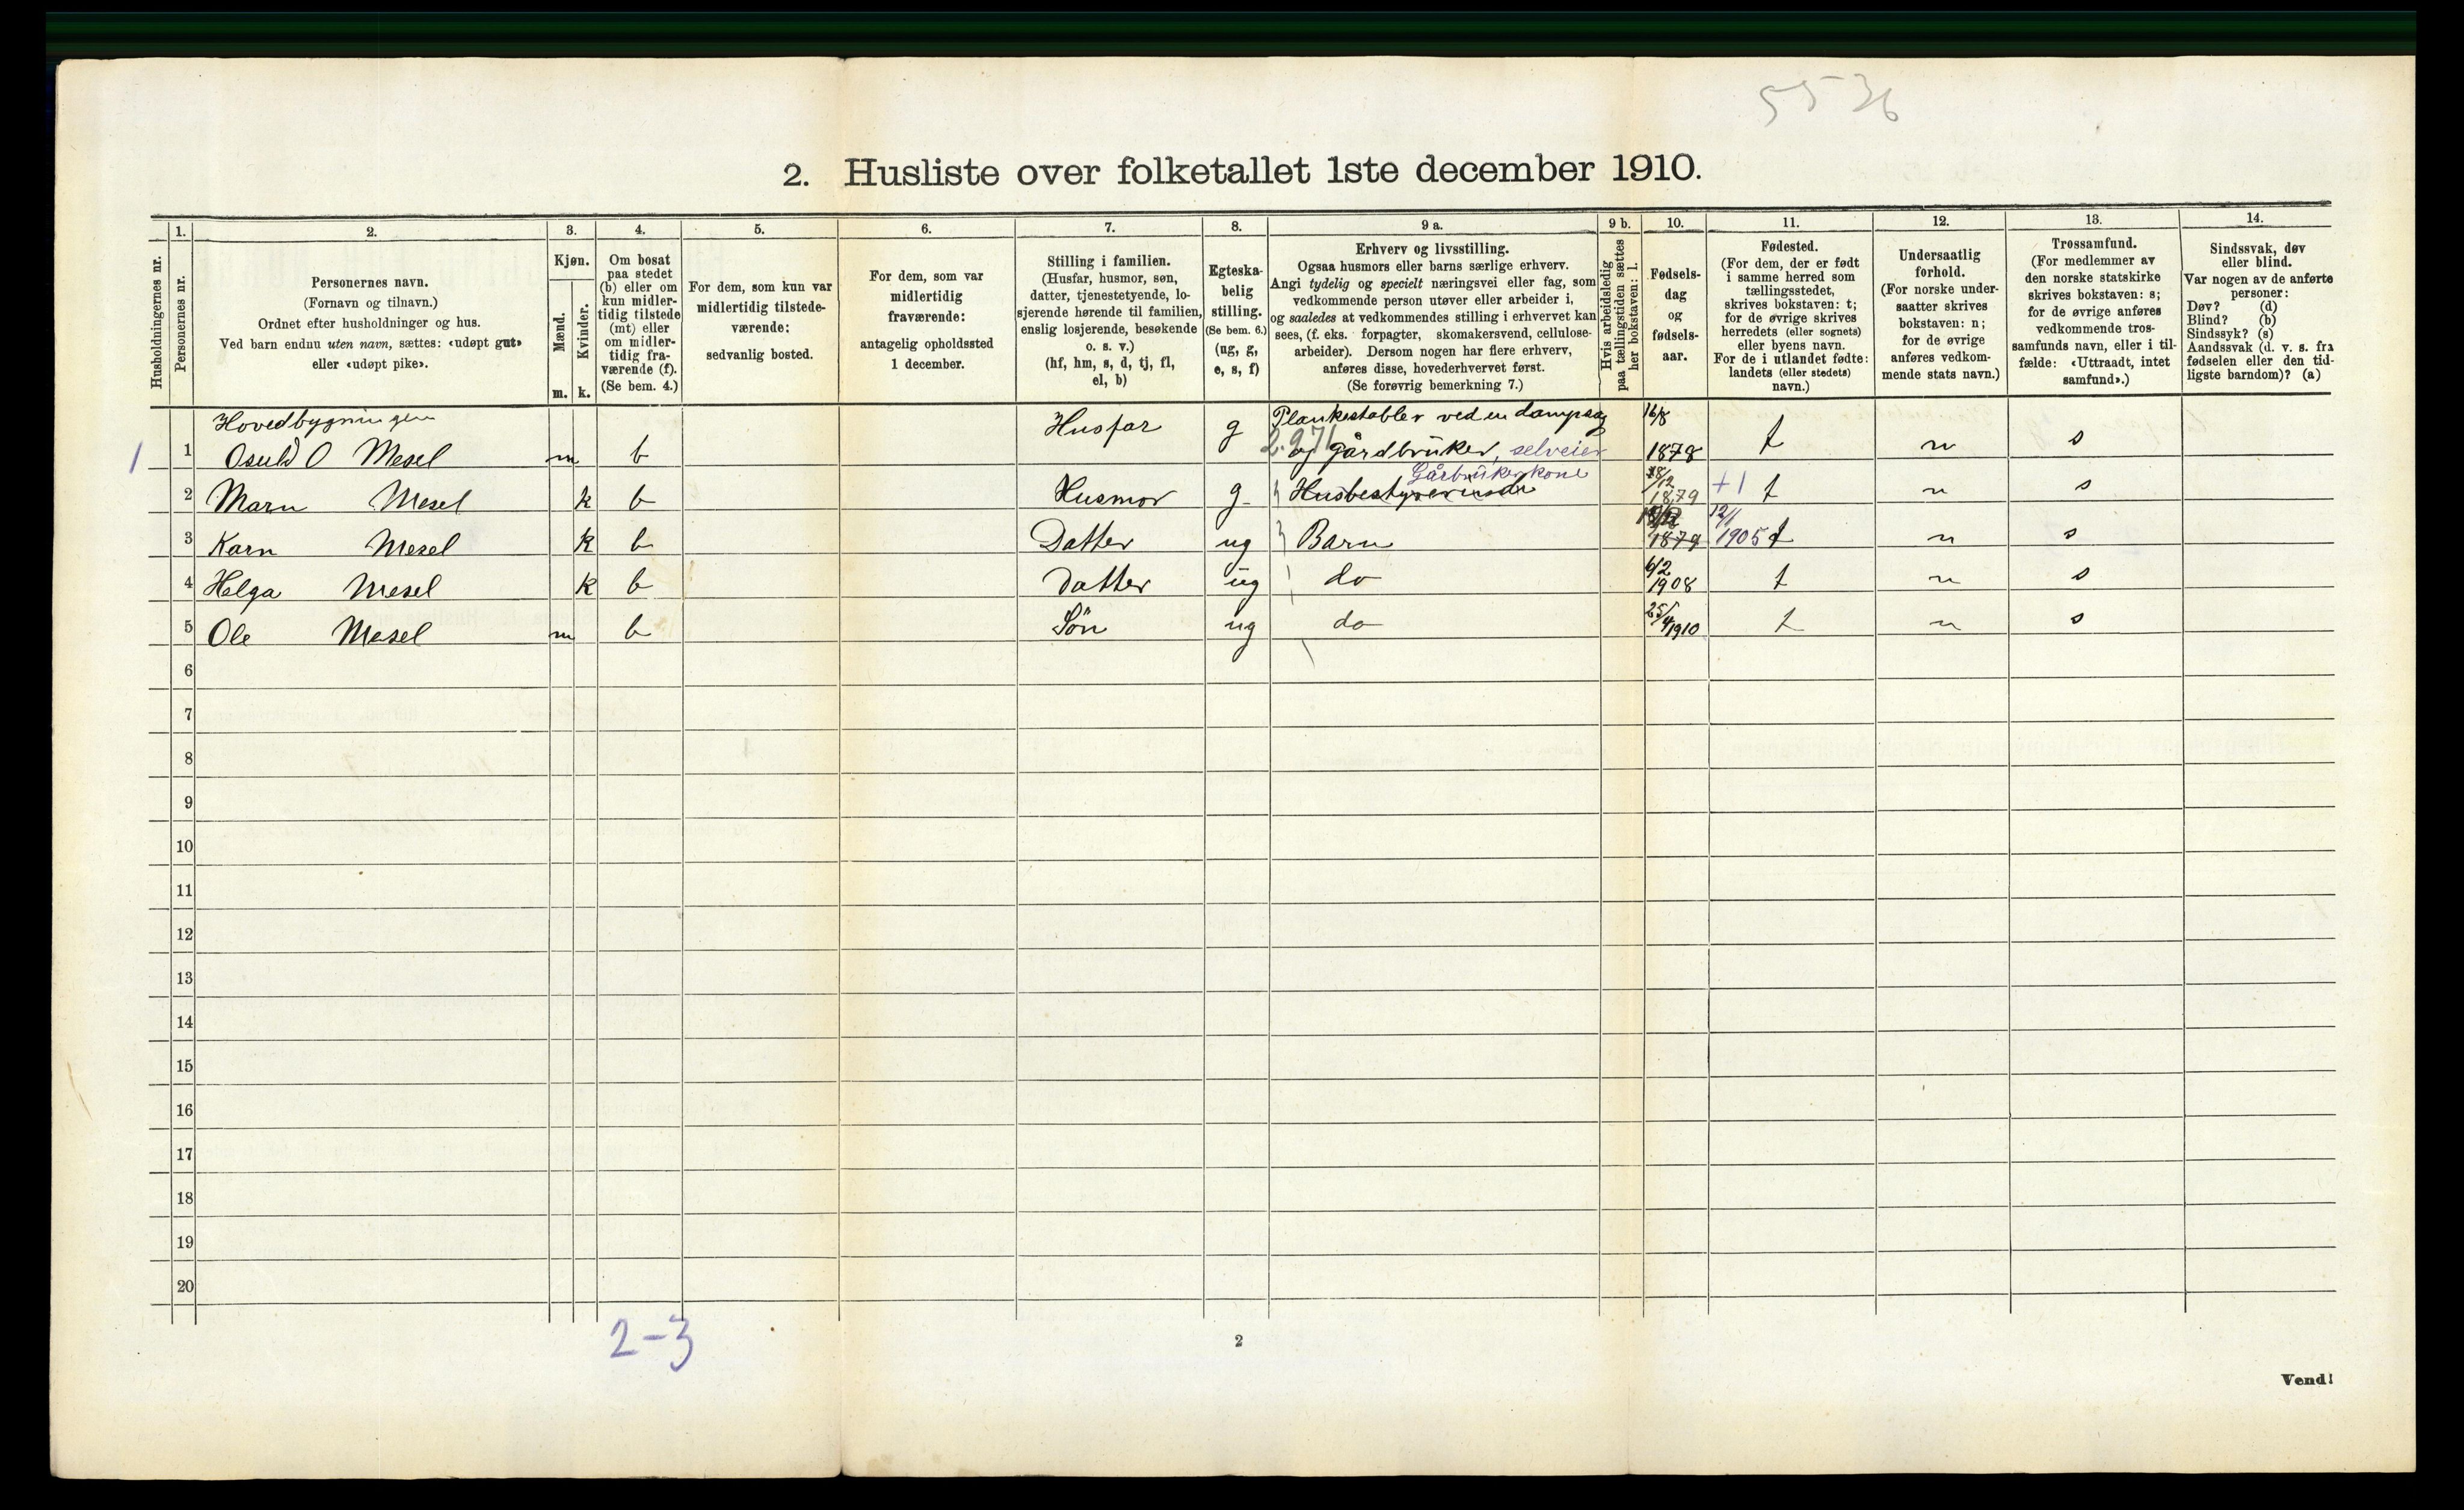 5536
2. Husliste over folketallet 1ste december 1910.
Husholdningernes nr.
1.
Personernes nr.
2.
Personernes navn.
(Fornavn og tilnavn.)
Ordnet efter husholdninger og hus.
Ved barn endnu uten navn, sættes: «udøpt gut»
eller «udøpt pike».
3.
Kjøn.
Mænd.
Kvinder.
m. k.
4.
Om bosat
paa stedet
(b) eller om
kun midler-
tidig tilstede
(mt) eller
om midler-
tidig fra-
værende (f).
(Se bem. 4.)
5.
For dem, som kun var
midlertidig tilstede-
værende:
sedvanlig bosted.
6.
For dem, som var
midlertidig
fraværende:
antagelig opholdssted
1 december.
7.
Stilling i familien.
(Husfar, husmor, søn,
datter, tjenestetyende, lo-
sjerende hørende til familien,
enslig losjerende, besøkende
o. s. v.)
(hf, hm, s, d, tj, fl,
el, b)
8.
Egteska-
belig
stilling.
(Se bem. 6.)
(ug, g,
e, s, f)
9 a.
Erhverv og livsstilling.
Ogsaa husmors eller barns særlige erhverv.
Angi tydelig og specielt næringsvei eller fag, som
vedkommende person utøver eller arbeider i,
og saaledes at vedkommendes stilling i erhvervet kan
sees, (f. eks. forpagter, skomakersvend, cellulose-
arbeider). Dersom nogen har flere erhverv,
anføres disse, hovederhvervet først.
(Se forøvrig bemerkning 7.)
9 b.
Hvis arbeidsledig
paa tællingstiden sættes
her bokstaven: l.
10.
Fødsels-
dag
og
fødsels-
aar.
11.
Fødested.
(For dem, der er født
i samme herred som
tællingsstedet,
skrives bokstaven: t;
for de øvrige skrives
herredets (eller sognets)
eller byens navn.
For de i utlandet fødte:
landets (eller stedets)
navn.)
12.
Undersaatlig
forhold.
(For norske under-
saatter skrives
bokstaven: n;
for de øvrige
anføres vedkom-
mende stats navn.)
13.
Trossamfund.
(For medlemmer av
den norske statskirke
skrives bokstaven: s;
for de øvrige anføres
vedkommende tros-
samfunds navn, eller i til-
fælde: «Uttraadt, intet
samfund».)
14.
Sindssvak, døv
eller blind.
Var nogen av de anførte
personer:
Døv? (d)
Blind? (b)
Sindssyk? (s)
Aandssvak (d. v. s. fra
fødselen eller den tid-
ligste barndom)? (a)
Hovedbygningen Plankestabler ved en dampsag 16/8
1 1 Osuld O Mesel m b Husfar g 2.971 og Gårdbruker, selveier 1878 t n s
Gårbrukerkone 18/12
2 Marn Mesel k b Husmor g Husbestyrerinde 1879 +1 t n s
12/1
3 Karn Mesel k b Datter ug Barn 1879 1905 t n s
4 Helga Mesel k b Datter ug do 6/2 1908 t n s
5 Ole Mesel m b Sön ug do 25/4 1910 t n s
6
7
8
9
10
11
12
13
14
15
16
17
18
19
20
2-3
2
Vend!